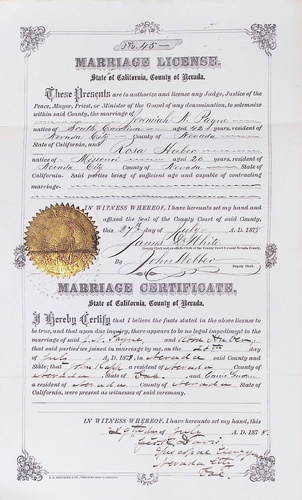 No. 45
MARRIAGE LICENSE,
State of California, County of Nevada.
These Presents are to authorize and license any Judge, Justice of the
Peace, Mayor, Priest, or Minister of the Gospel of any denomination, to solemnize
within said County, the marriage of Jeremiah N. Payne
native of South Carolina aged 42 years, resident of
Nevada City County of Nevada
State of California, and Rosa Huber
native of Missouri aged 20 years, resident of
Nevada City County of Nevada State of
California. Said parties being of sufficient age and capable of contracting
marriage.
IN WITNESS WHEREOF, I have hereunto set my hand and
affixed the Seal of the County Court of said County,
this 27th day of July A.D. 1875
James D. White
By John Webber
Deputy Clerk.
MARRIAGE CERTIFICATE.
State of California, County of Nevada.
I Hereby Certify that I believe the facts stated in the above license to
be true, and that upon due inquiry, there appears to be no legal impediment to the
marriage of said J. N. Payne, and Rosa Huber,
that said parties were joined in marriage by me, on the day
of July A.D. 187 , in Nevada said County and
State; that a resident of Nevada County of
Nevada State of Cal, and
a resident of Nevada County of Nevada State of
were present as witnesses of said ceremony.
IN WITNESS WHEREOF, I have hereunto set my hand, this
29th day of July A.D. 187
Geo. R. Davis
Episcopal
Nevada City
Cal.